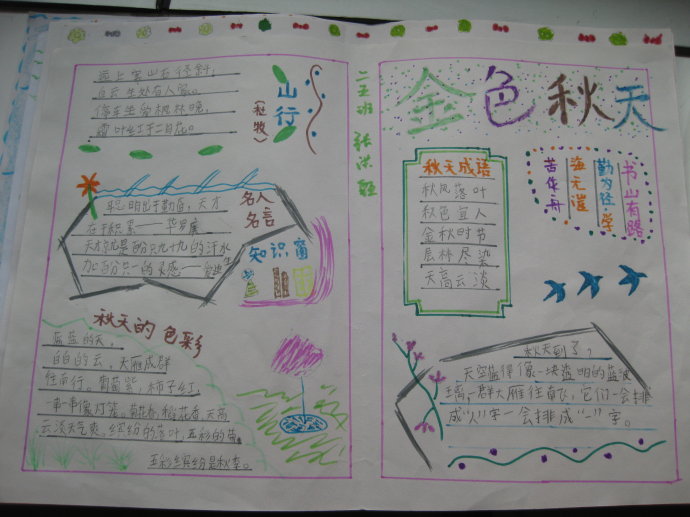 山行
(杜牧)
远上寒山石径斜,
白云生处有人家。
停车坐爱枫林晚,
霜叶红于二月花。
名人
名言
聪明出于勤奋,天才
在于积累——华罗庚
天才就是百分九十九的汗水
加百分之一的灵感——
知识窗
秋天的色彩
蓝蓝的天,
白白的云,大雁成群
往南行。葡萄紫,柿子红,
一串串像灯笼。菊花香,稻花香,天高
云淡天气爽。缤纷的落叶,五彩的
五彩缤纷是秋季。
二五班
金色秋天
秋天成语
秋风落叶
秋色宜人
金秋时节
层林尽染
天高云淡
书山有路
勤为径,学
海无涯
苦作舟
秋天到了,
天空蓝得像一块蓝明的蓝玻
璃,一群大雁往南飞,它们一会排
成"人"字一会排成"一"字。